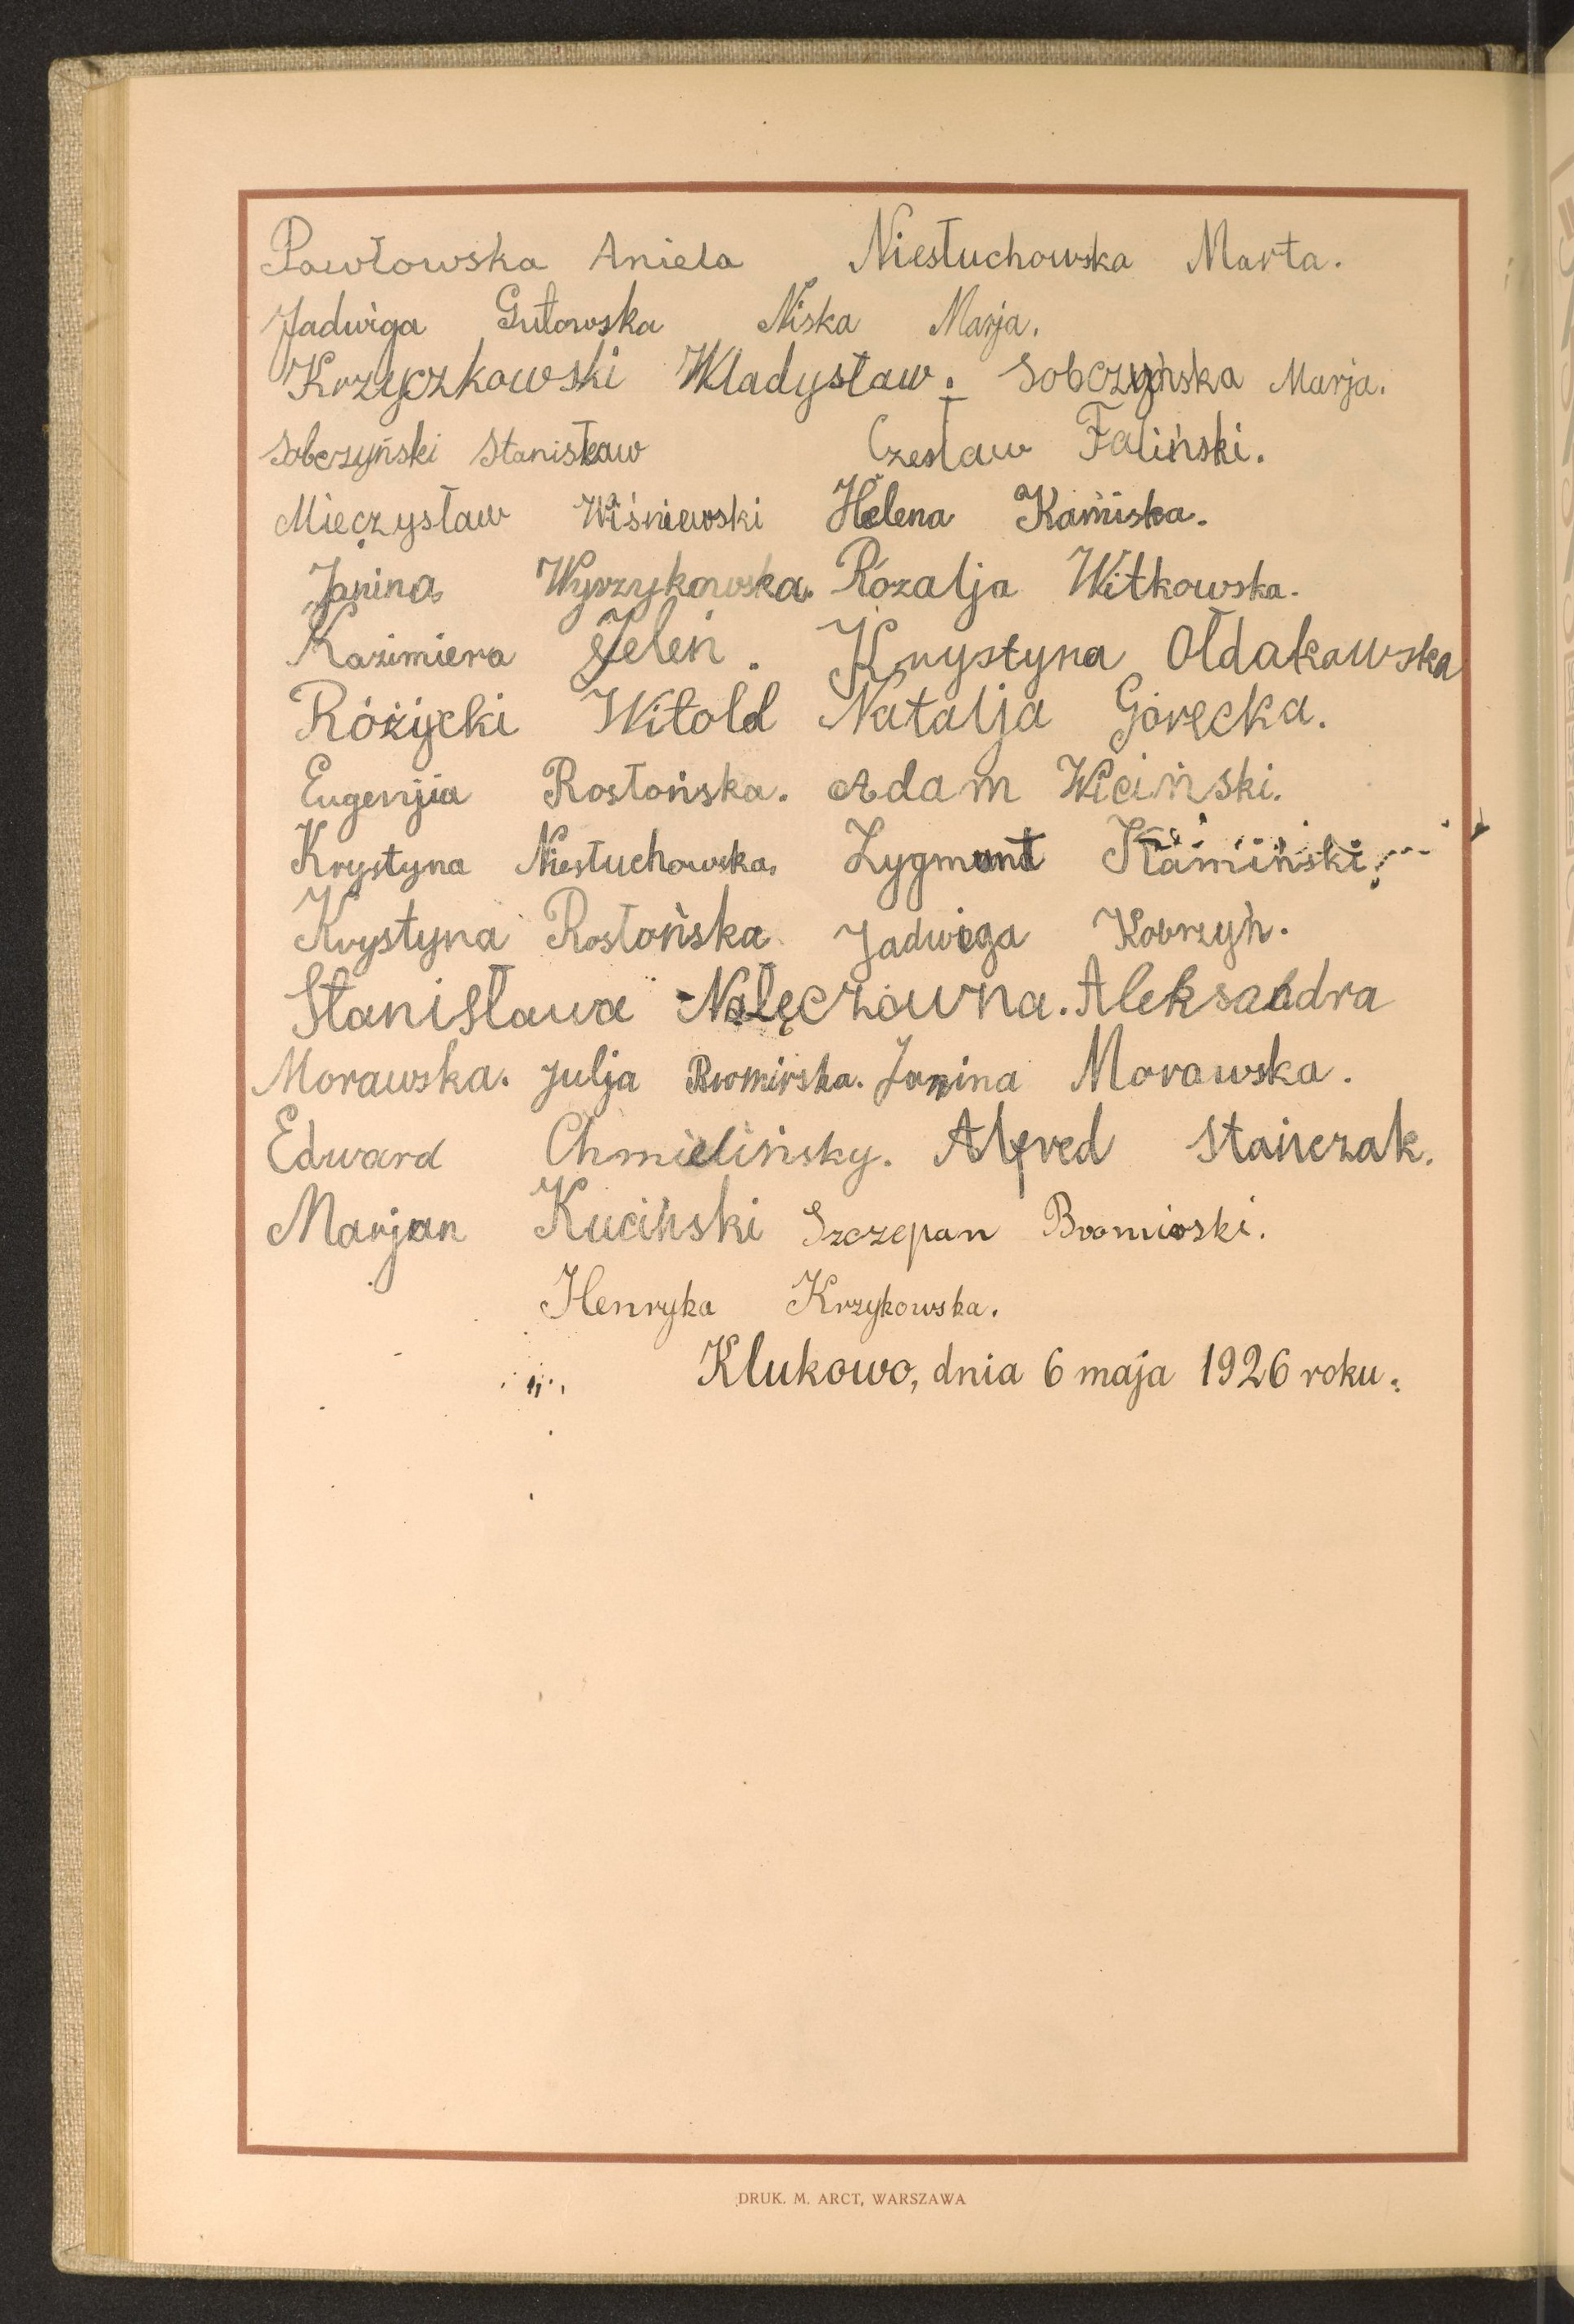 Pawłowska Aniela Niesłuchowska Marta.
Jadwiga Gutowska Niska Marja.
Krzyczkowski Władysław. Sobczyńska Marja.
Sobczyński Stanisław Czesław Faliński.
Mieczysław Wiśniewski Helena Kamińska.
Janina Wyrzykowska. Rozalja Witkowska.
Kazimiera Jeleń. Krystyna Ołdakowska
Różycki Witold Natalja Górecka.
Eugenjia Rostońska. Adam Wiciński.
Krystyna Niesłuchowska. Zygmunt Kamiński.
Krystyna Rostońska Jadwiga Kobrzyń.
Stanisława Nałęczówna. Aleksandra
Morawska. Julja Bromirska. Janina Morawska.
Edward Chmielińsky. Alfred Stańczak.
Marjan Kuciński Szczepan Bromirski.
Henryka Krzykowska.
Klukowo, dnia 6 maja 1926 roku.
DRUK. M. ARCT, WARSZAWA